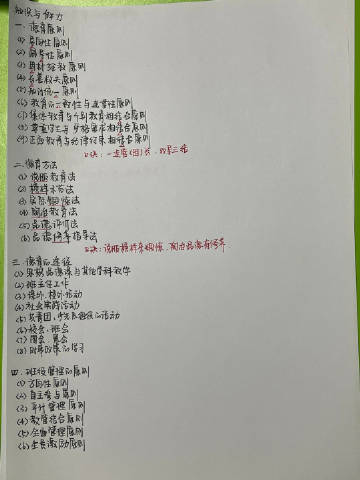 知识与能力
一. 德育原则
(1) 导向性原则
(2) 疏导性原则
(3) 因材施教原则
(4) 长善救失原则
(5) 知行统一原则
(6) 教育的一致性与连贯性原则
(7) 集体教育与个别教育相结合原则
(8) 尊重学生与严格要求相结合原则
(9) 正面教育与纪律约束相结合原则
口诀:
二. 德育方法
(1) 说服教育法
(2) 榜样示范法
(3) 实际锻炼法
(4) 陶冶教育法
(5) 品德评价法
(6) 品德修养指导法
口诀: 说服榜样
三. 德育的途径
(1) 思想品德课与其他学科教学
(2) 班主任工作
(3) 课外、校外活动
(4) 社会实践活动
(5) 共青团、少先队组织的活动
(6) 校会、班会
(7) 周会、晨会
(8) 时事政策的学习
四. 班级管理的原则
(1) 方向性原则
(2) 自主参与原则
(3) 平行管理原则
(4) 教管结合原则
(5) 全面管理原则
(6) 激励原则